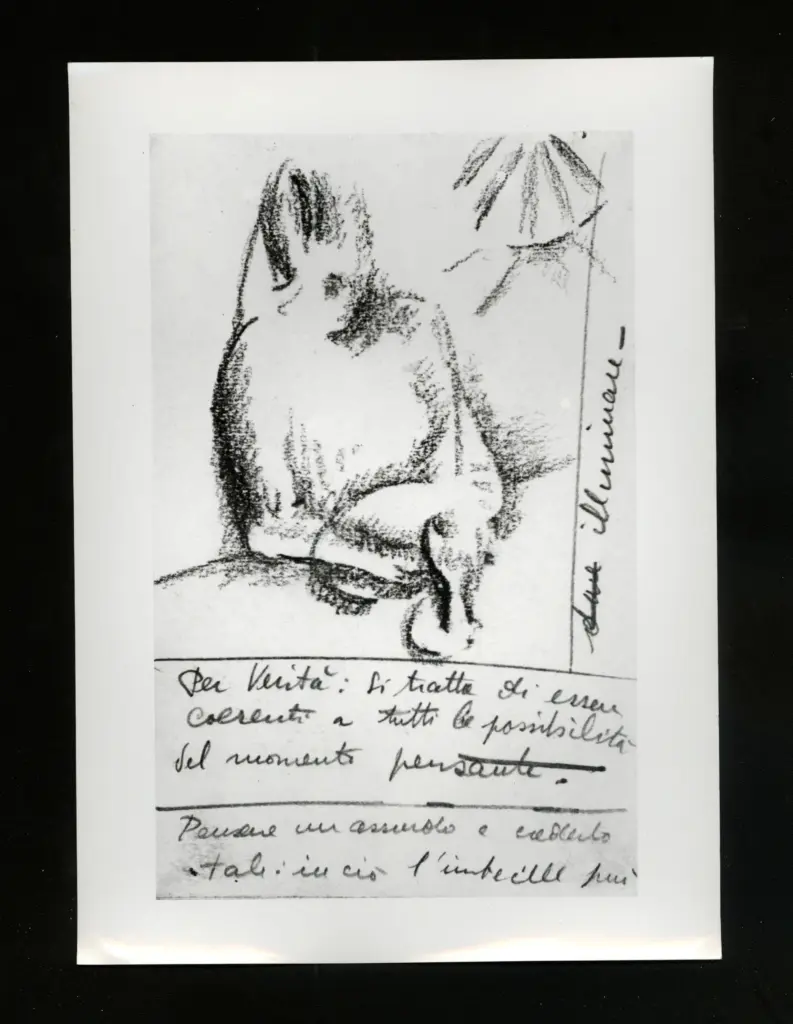 illuminare –
Per Verità: si tratta di essere
coerenti a tutti le possibilità
del momento pensante.
Pensare un assurdo e crederlo
tale: in ciò l'imbecille può